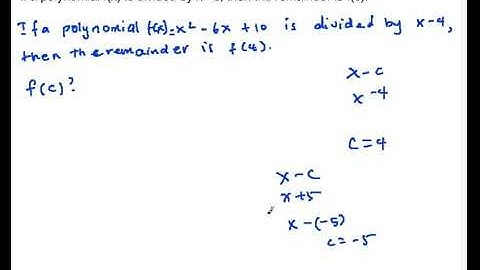 If a polynomial f(x)=x² - 6x + 10 is divided by x-4,
then the remainder is f(4).
f(c)?
x - c
x - 4
c = 4
x - c
x + 5
x - (-5)
c = -5